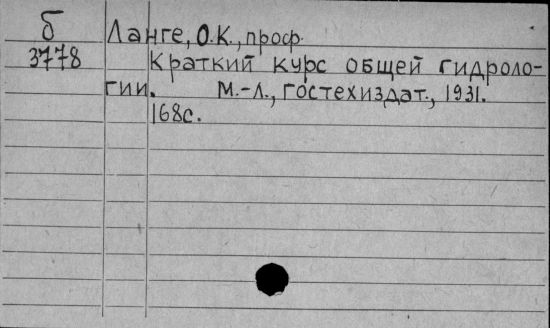 Б
3778
Ланге, О.К., проф.
Краткий курс общей гидроло-
гии. М.-Л., Гостехиздат., 1931.
168с.